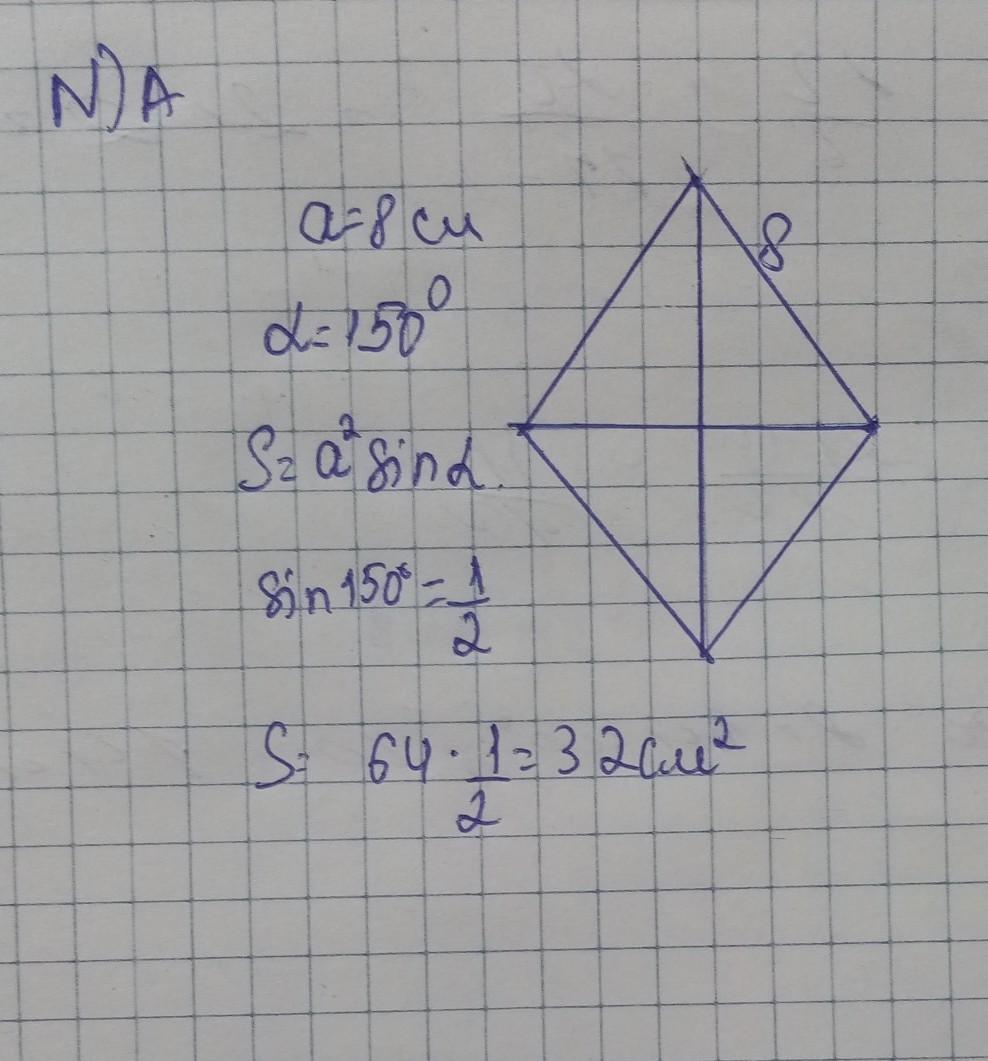 N)A
a=8 см
8
α=150⁰
S=a² sin α.
sin 150°=1/2
S= 64·1/2=32см²